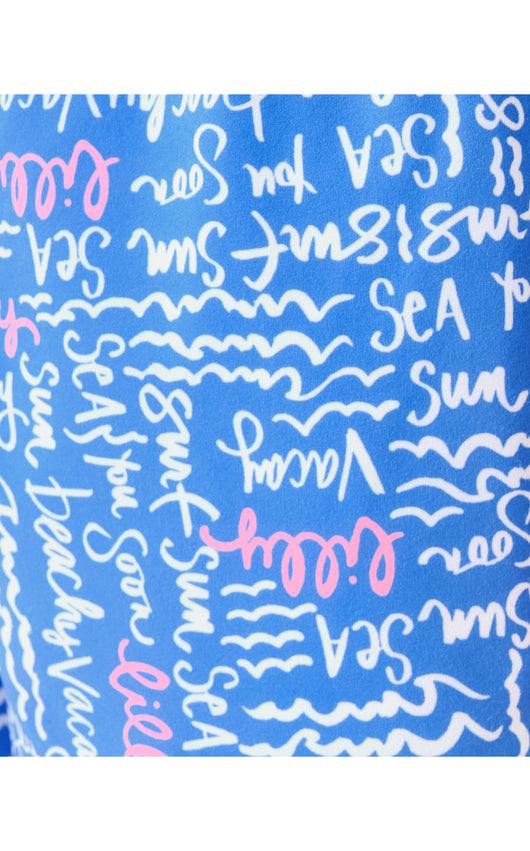 Beachy Vaca
lilly
SEA You Soon
SEA
Sun Surf
SEA Yo
Sun
Vacay
lilly
SEA You Soon
Surf Sun SEA
Sun Beachy Vaca
Soon
Sun SEA
lill